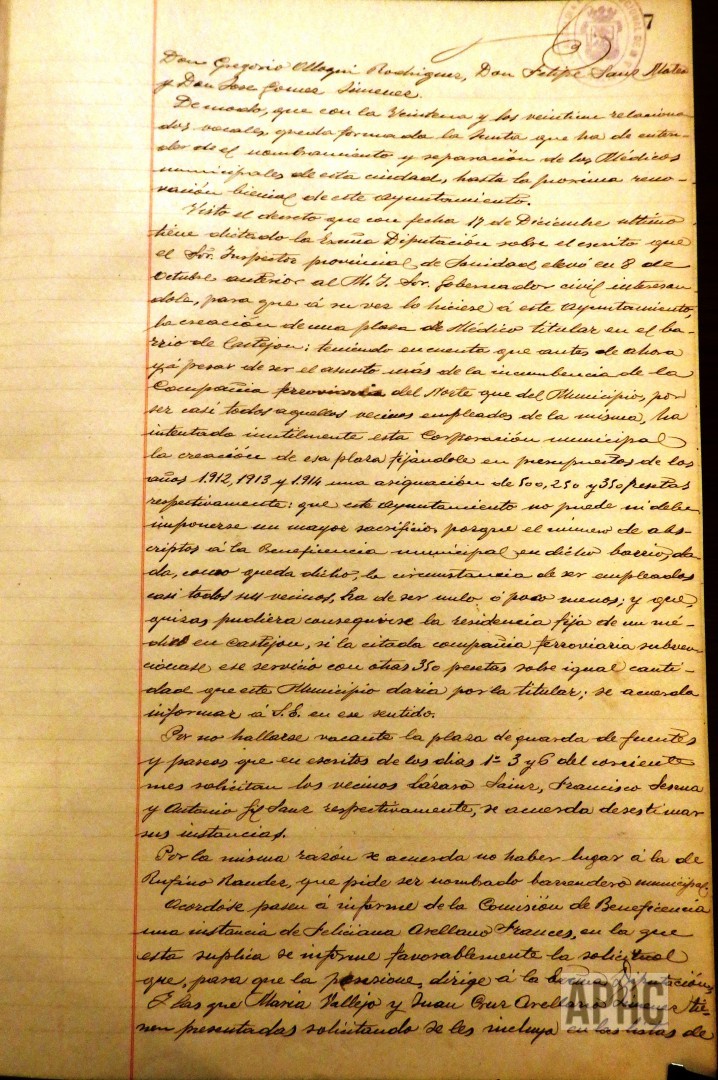 7
Don Gregorio Alloqui Rodriguez, Don Felipe Sanz Mateo
y Don José Gomez Jimenez.
De modo, que con la Veintena y los veintiun relaciona-
dos vocales, queda formada la Junta que ha de enten-
der de el nombramiento y separación de los Médicos
municipales de esta ciudad, hasta la proxima reno-
vación bienal de este Ayuntamiento.
Visto el decreto que con fecha 17 de Diciembre ultimo
tiene dictado la Exma Diputación sobre el escrito que
el Sor. Inspector provincial de Sanidad elevó en 8 de
octubre anterior al M. I. Sor. Gobernador civil interesan
dole, para que á su vez lo hiciese á este Ayuntamiento,
la creación de una plaza de Médico titular en el ba-
rrio de Castejon: teniendo en cuenta que antes de ahora
y á pesar de ser el asunto más de la incumbencia de la
Compañia ferroviaria del Norte que del Municipio, por
ser casi todos aquellos vecinos empleados de la misma, ha
intentado inutilmente esta Corporación municipal
la creación de esa plaza fijándole en presupuestos de los
años 1.912, 1913 y 1.914 una asignación de 500, 250 y 350 pesetas
respectivamente: que este Ayuntamiento no puede ni debe
imponerse un mayor sacrificio, porque el número de abs-
criptos á la Beneficencia municipal en dicho barrio, da-
da, como queda dicho, la circunstancia de ser empleados
casi todos sus vecinos, ha de ser nulo ó poco menos; y que
quizas pudiera conseguirse la residencia fija de un mé-
dico en Castejon, si la citada compañia ferroviaria subven
cionase ese servicio con otras 350 pesetas sobre igual canti-
dad que este Municipio daria por la titular; se acuerda
informar á S.E. en ese sentido.
Por no hallarse vacante la plaza de guarda de fuentes
y paseos que en escritos de los dias 1º 3 y 6 del corriente
mes solicitan los vecinos Lázaro Sainz, Francisco Sesma
y Antonio Gil Sanz respectivamente, se acuerda desestimar
sus instancias.
Por la misma razón se acuerda no haber lugar á la de
Rufino Rández, que pide ser nombrado barrendero municipal.
Acordóse pasen á informe de la Comisión de Beneficencia
una instancia de Feliciana Arellano Frances, en la que
esta suplica se informe favorablemente la solicitud
que, para que la pensione, dirige á la Exma Diputación,
y las que Maria Vallejo y Juan Cruz Arellano tie-
nen presentadas solicitando se les incluya en las listas de
APHC